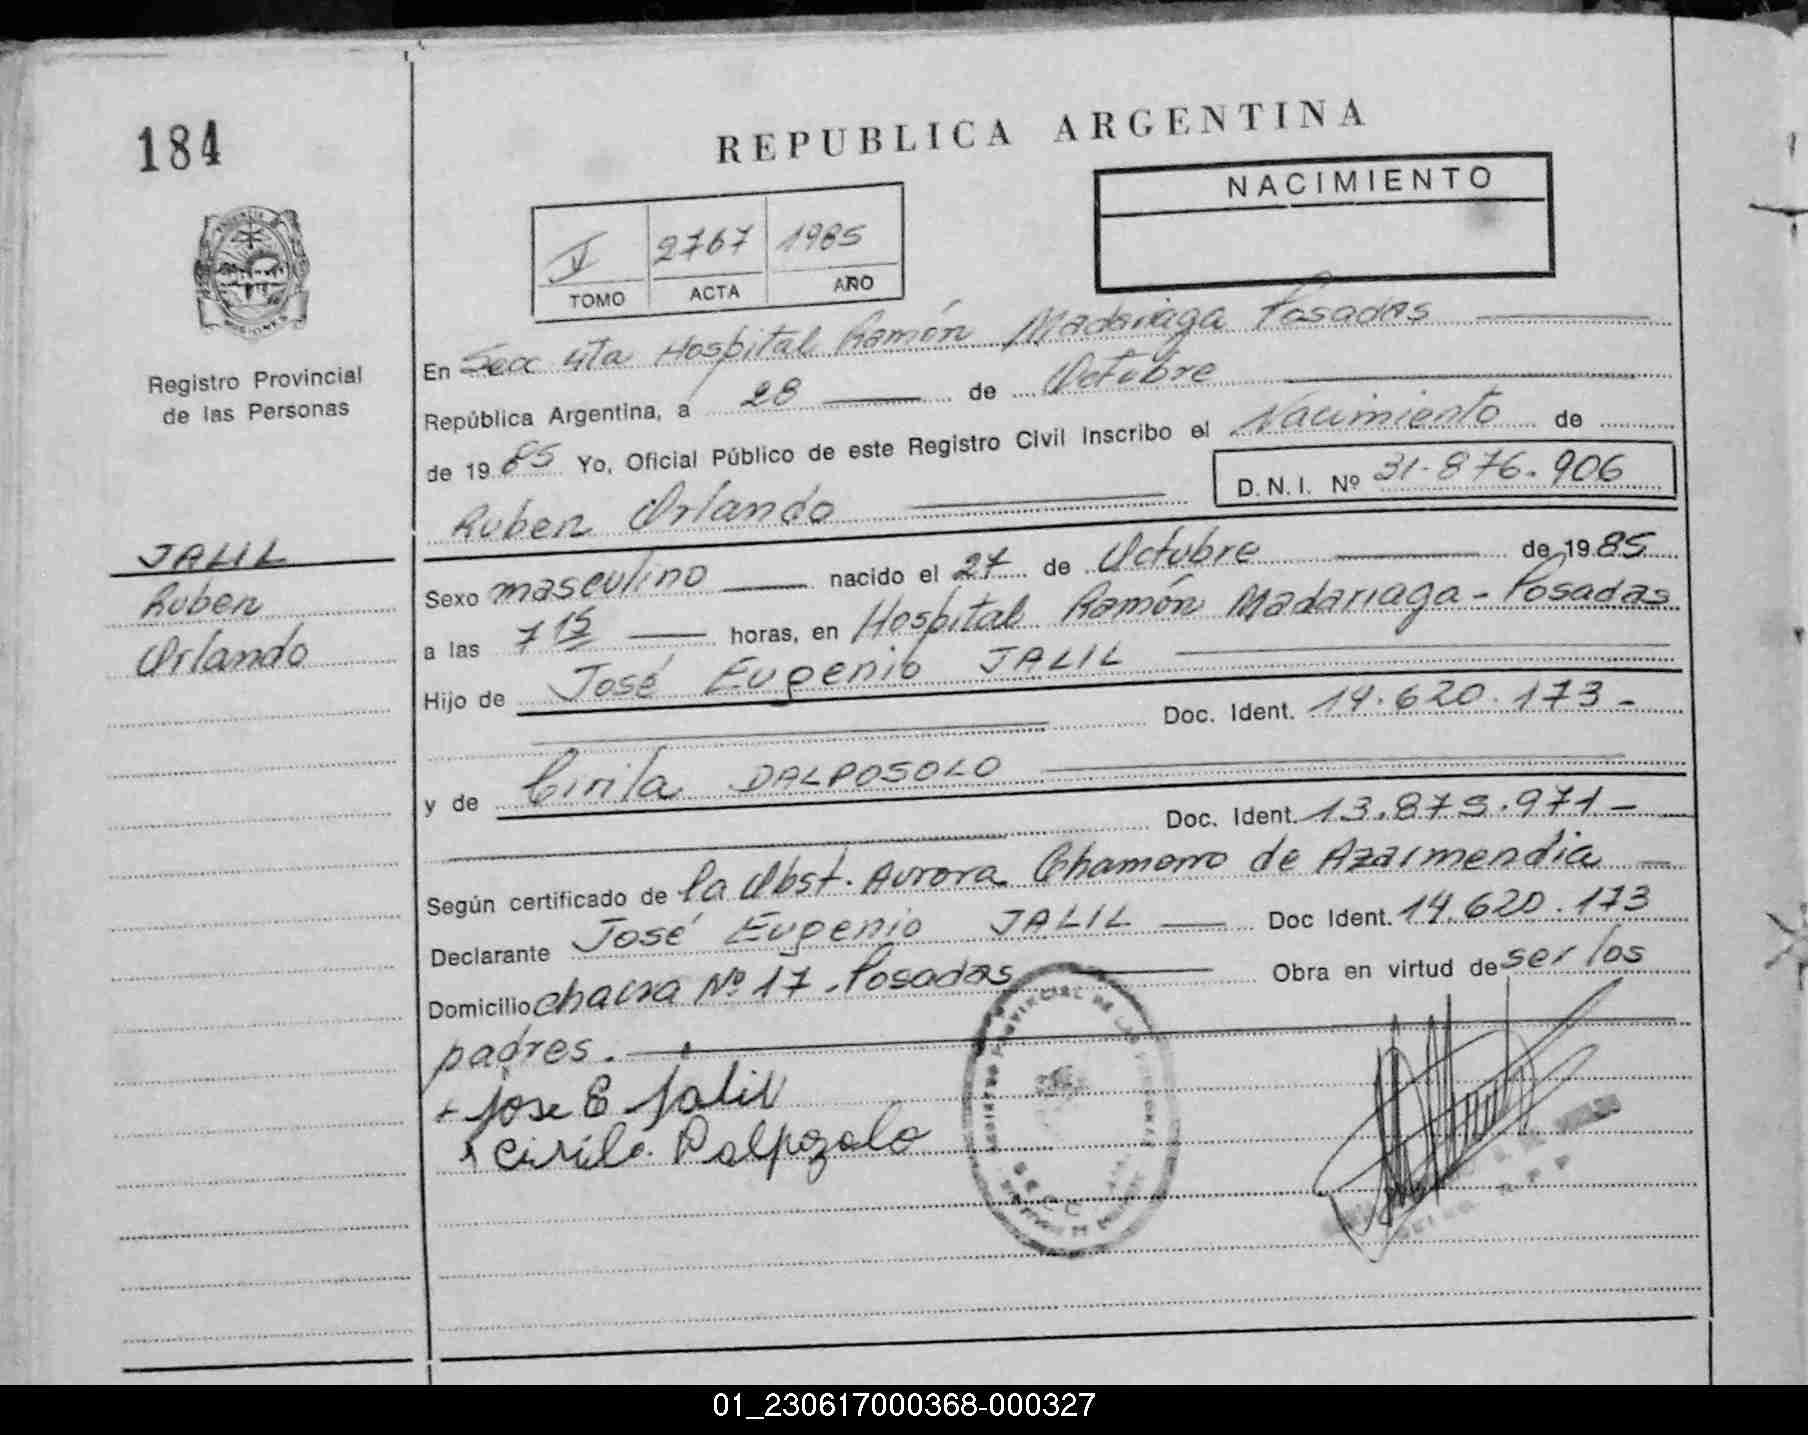 184
REPUBLICA ARGENTINA
NACIMIENTO
V 2767 1985
TOMO ACTA AÑO
Registro Provincial
de las Personas
JALIL
Ruben
Orlando
En Secc 4ta Hospital Ramón Madariaga Posadas
República Argentina, a 28 de Octubre
de 1985 Yo, Oficial Público de este Registro Civil Inscribo el Nacimiento de
Ruben Orlando D.N.I. Nº 31.876.906
Sexo masculino nacido el 27 de Octubre de 1985
a las 7 15 horas, en Hospital Ramón Madariaga - Posadas
Hijo de José Eugenio JALIL
Doc. Ident. 14.620.173-
y de Cirila DALPOSOLO
Doc. Ident. 13.875.971-
Según certificado de la Obst. Aurora Chamorro de Azarmendia
Declarante José Eugenio JALIL Doc Ident. 14.620.173
Domicilio chacra Nº 17. Posadas Obra en virtud de ser los
padres.
Jose E Jalil
Cirila Dalpozolo
01_230617000368-000327